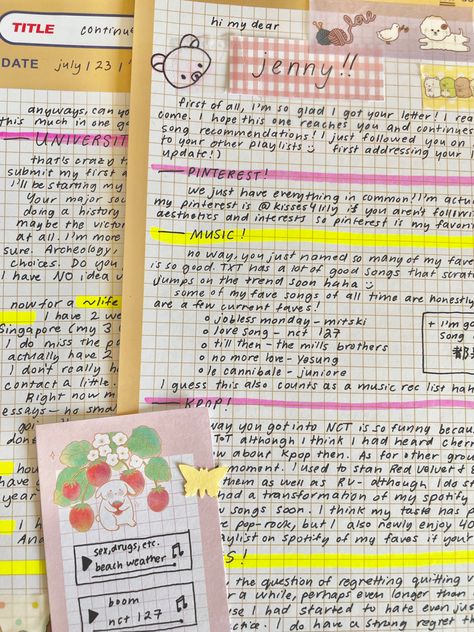 TITLE continue
DATE july 23
anyways, can you
this much in one g
— UNIVERSIT
that's crazy t
submit my first a
i'll be starting my
Your major sou
doing a history
maybe the victor
at all. I'm more
sure. Archeology,
choices. Do you
I have NO idea
now for a ~life
I have 2 we
Singapore (my 3
I do miss the po
actually have 2
I don't really h
contact a little.
Right now m
essays — no sma
done
hou
have
year
I h
An
hi my dear
jenny!!
first of all, I'm so glad I got your letter! I rea
come. I hope this one reaches you and continue
song recommendations! I just followed you on
to your other playlists first addressing your
update!)
— PINTEREST!
we just have everything in common! I'm actua
my pinterest is @kisses4lily if you aren't followin
aesthetics and interests so pinterest is my favori
— MUSIC!
no way, you just named so many of my fave
is so good. TXT has a lot of good songs that scrat
jumps on the trend soon haha
some of my fave songs of all time are honestly
are a few current faves!
o jobless monday - mitski
o love song - nct 127
o till then - the mills brothers
o no more love - yesung
o le cannibale - juniore
+ I'm go
song
I guess this also counts as a music rec list hah
— KPOP!
way you got into NCT is so funny becau
ToT although I think I had heard cher
about Kpop then. As for other grou
moment. I used to stan Red Velvet &
them as well as RV - although I do st
had a transformation of my spotify
songs soon. I think my taste has p
pop-rock, but I also newly enjoy 40
playlist on spotify of my faves if your
S!
the question of regretting quitting
a while, perhaps even longer than
use I had started to hate even just
ctice. I do have a strong regret t
sex, drugs, etc.
beach weather
boom
nct 127